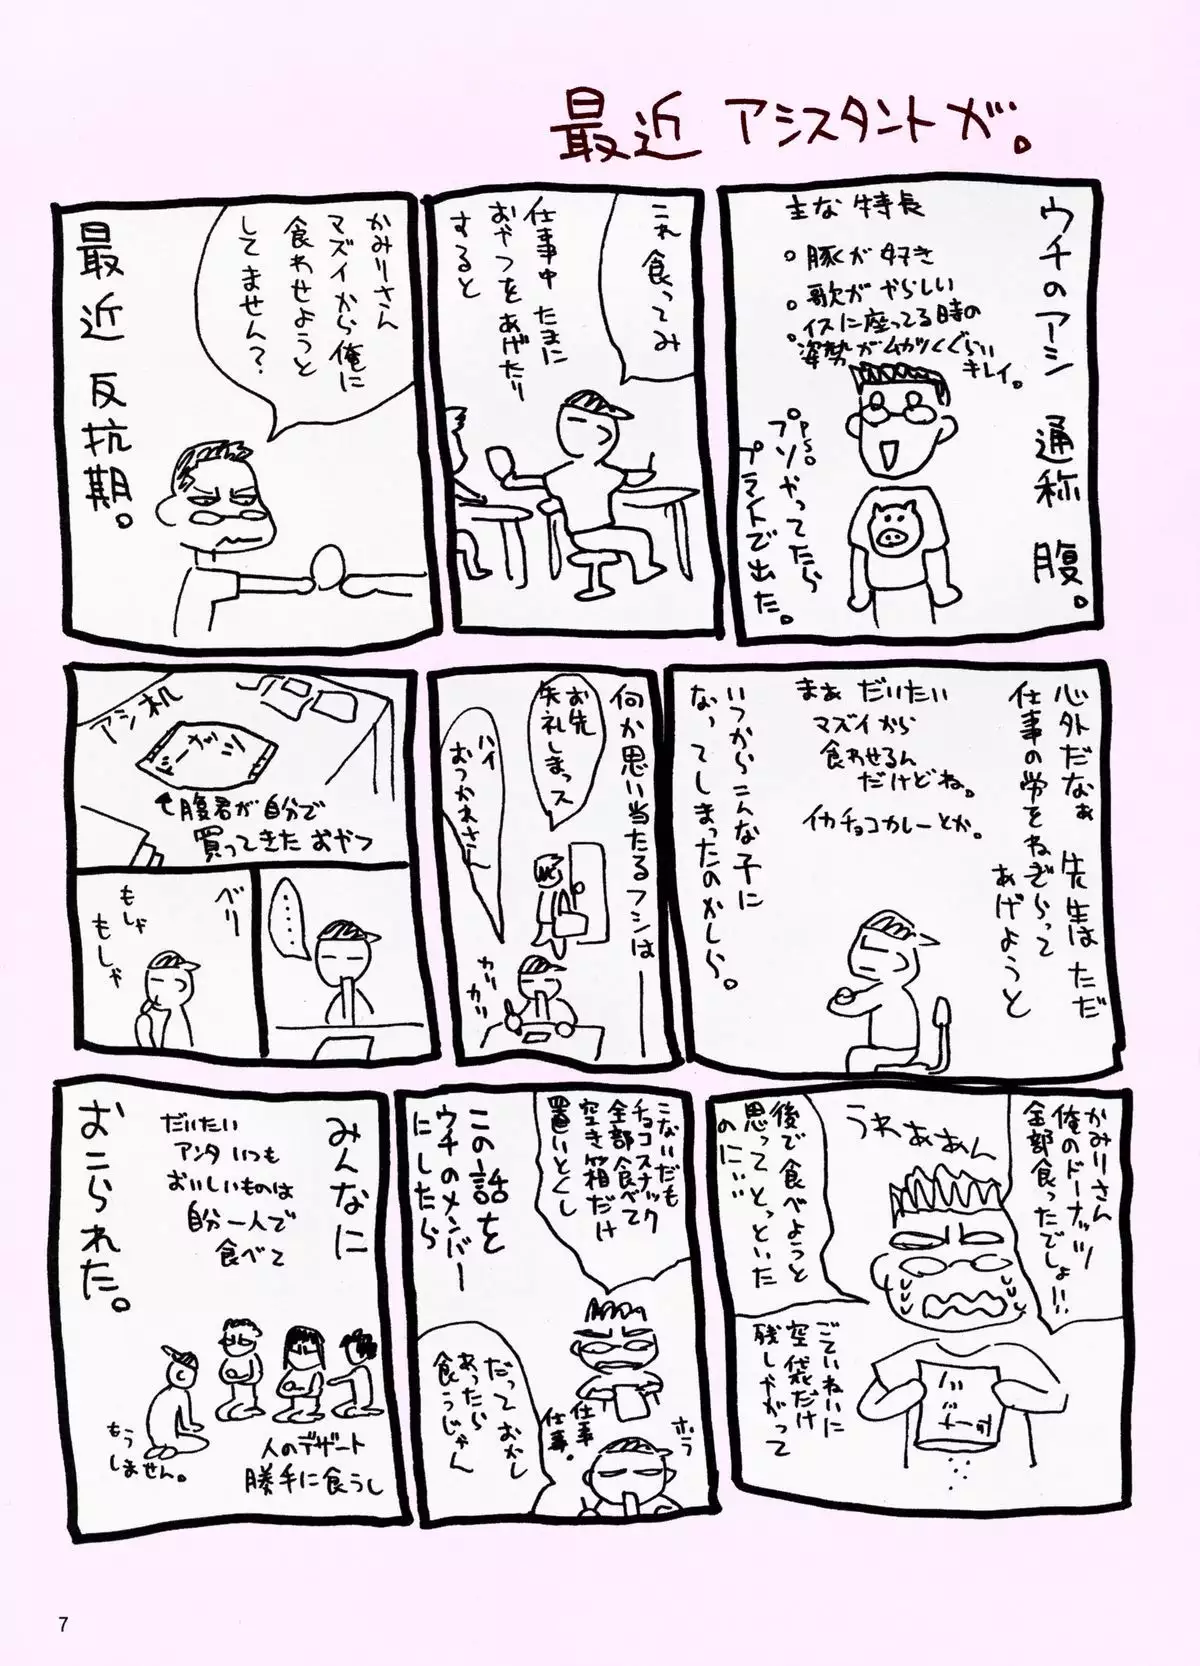 最近 アシスタントが。
ウチのアシ 通称 腹。
主な特長
。豚くが好き
。歌がやらしい
。イスに座ってる時の
姿勢がムカツくぐらい
キレイ。
。P.S.
プソやってたら
プライトで出た。
これ食ってみ
仕事中 たまに
おやつをあげたり
すると
かみりさん
マズイから俺に
食わせようと
してません?
最近 反抗期。
心外だなぁ 先生はただ
仕事の労をねぎらって
あげようと
まぁ だいたい
マズイから
食わせるん
だけどね。
イカチョコカレーとか。
いつからこんな子に
なってしまったのかしら。
何か思い当たるフシは
お先
失礼しまっス
ハイ
おつかれさん
カリ
カリ
アシ机
↖腹君が自分で
買ってきたおやつ
・・・・
ベリー
もしゃ
もしゃ
かみりさん
俺のドーナッツ
全部食ったでしょ!!
うわぁぁん
後で食べようと
思ってとっといた
のに…
ごていねいに
空袋だけ
残しやがって
こないだも
チョコスナック
全部食べて
空き箱だけ
置いとくし
この話を
ウチのメンバー
にしたら
ホラ
仕事
仕事。
だっておかし
あったら
食うじゃん
みんなに
だいたい
アンタいつも
おいしいものは
自分一人で
食べて
人のデザート
勝手に食うし
もう
しません。
おこられた。
7